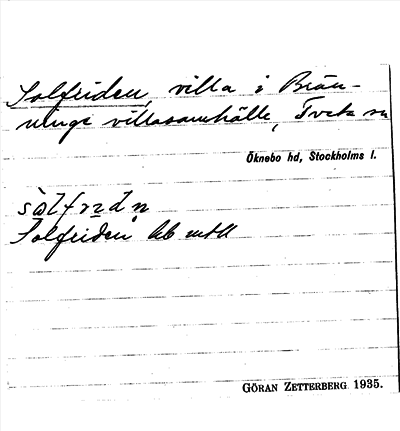 Solfriden, villa i Brän-
ninge villasamhälle, Tveta sn
Öknebo hd, Stockholms l.
Solfriden
GÖRAN ZETTERBERG 1935.